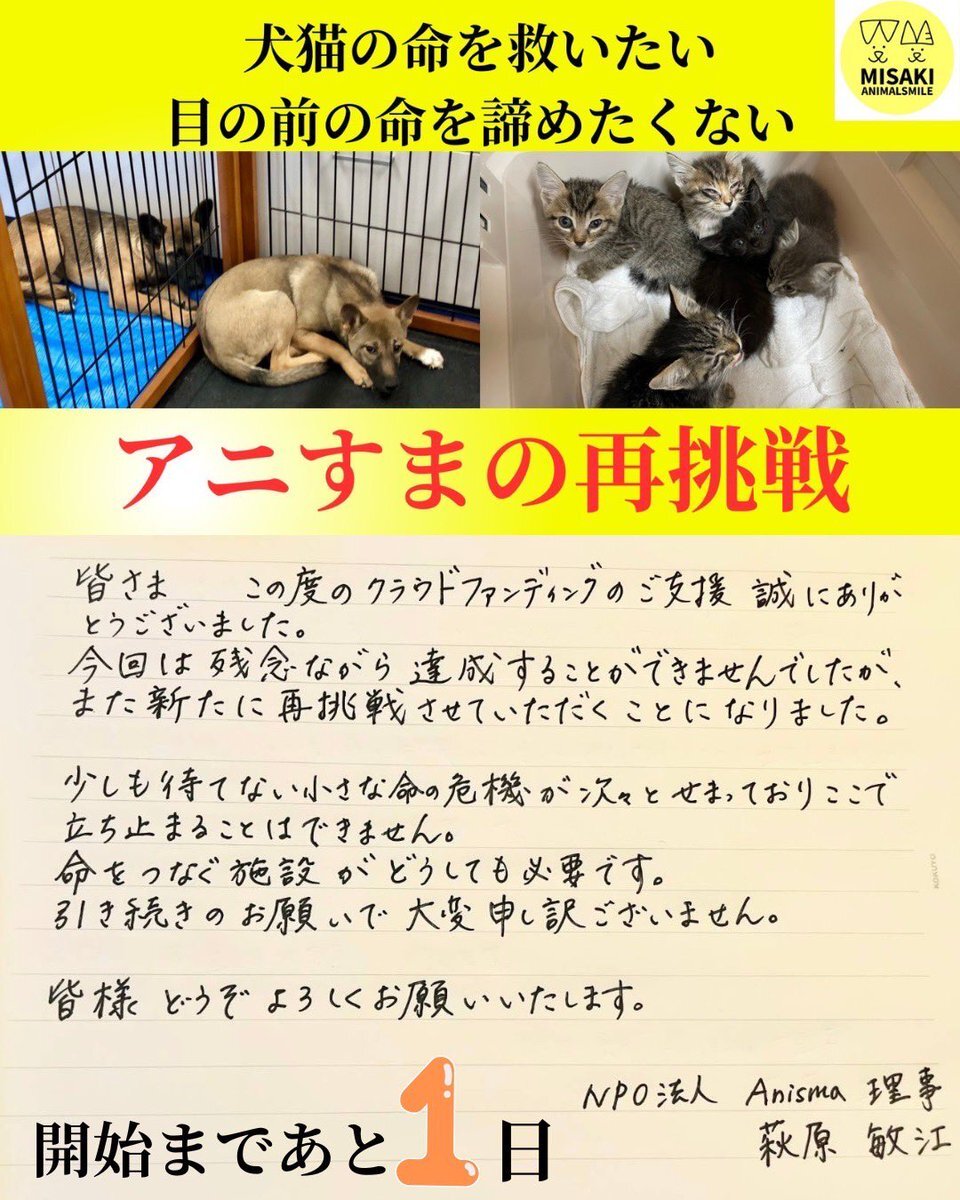 犬猫の命を救いたい
目の前の命を諦めたくない
MISAKI
ANIMALSMILE
アニすまの再挑戦
皆さま この度のクラウドファンディングのご支援 誠にありが
とうございました。
今回は残念ながら達成することができませんでしたが、
また新たに再挑戦させていただくことになりました。
少しも待てない小さな命の危機が次々とせまっておりここで
立ち止まることはできません。
命をつなぐ施設がどうしても必要です。
引き続きのお願いで大変申し訳ございません。
皆様どうぞよろしくお願いいたします。
KOKUYO
NPO法人 Anisma 理事
萩原 敏江
開始まであと1日